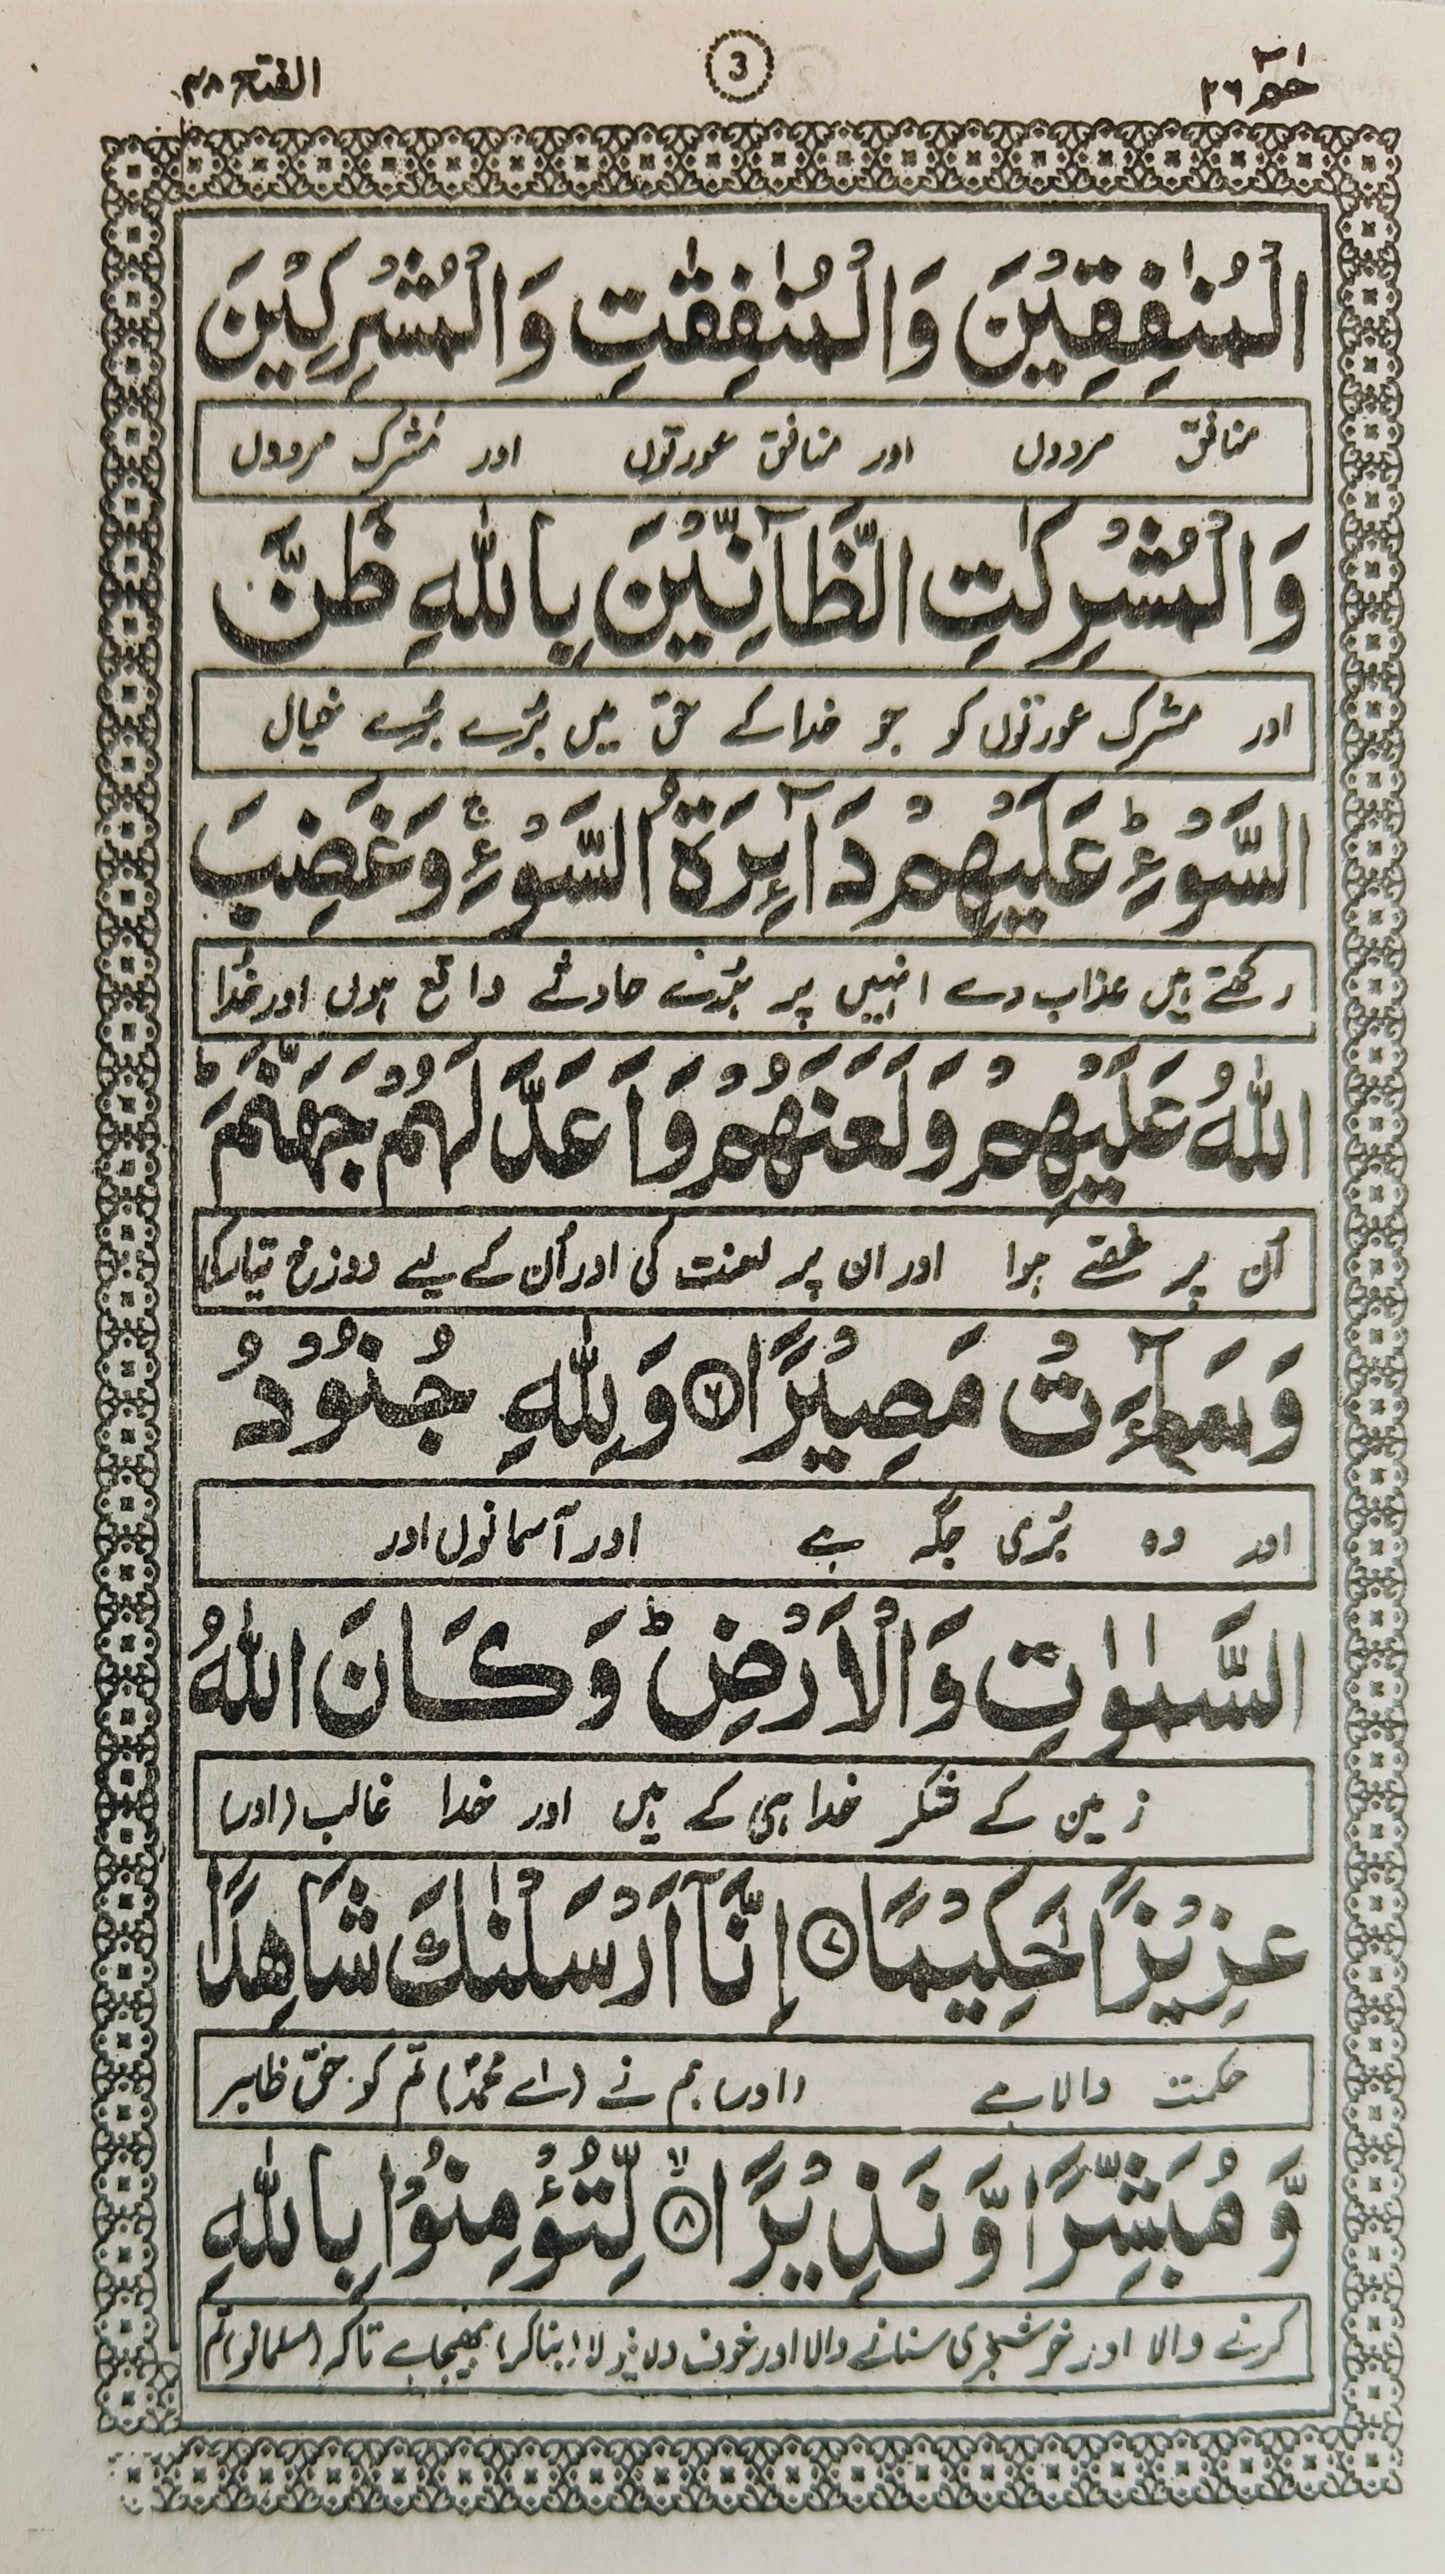 حٰمٓ ٢٦
3
الفتح ٤٨
الْمُنٰفِقِيْنَ وَالْمُنٰفِقٰتِ وَالْمُشْرِكِيْنَ
منافق مردوں اور منافق عورتوں اور مُشرک مردوں
وَالْمُشْرِكٰتِ الظَّآنِّيْنَ بِاللّٰهِ ظَنَّ
اور مشرک عورتوں کو جو خدا کے حق میں بُرے بُرے خیال
السَّوْءِ ؕ عَلَيْهِمْ دَآئِرَةُ السَّوْءِ ۚ وَغَضِبَ
رکھتے ہیں عذاب دے انہیں پر بُرے حادثے واقع ہوں اور خُدا
اللّٰهُ عَلَيْهِمْ وَلَعَنَهُمْ وَاَعَدَّ لَهُمْ جَهَنَّمَ ؕ
اُن پر غصّے ہوا اور ان پر لعنت کی اور اُن کے لیے دوزخ تیار کی
وَسَآءَتْ مَصِيْرًا ٦ وَلِلّٰهِ جُنُوْدُ
اور وہ بُری جگہ ہے اور آسمانوں اور
السَّمٰوٰتِ وَالْاَرْضِ ؕ وَكَانَ اللّٰهُ
زمین کے لشکر خدا ہی کے ہیں اور خدا غالب (اور)
عَزِيْزًا حَكِيْمًا ٧ اِنَّآ اَرْسَلْنٰكَ شَاهِدًا
حکمت والا ہے (اور) ہم نے (اے محمدؐ) تم کو حق ظاہر
وَّمُبَشِّرًا وَّنَذِيْرًا ٨ لِّتُؤْمِنُوْا بِاللّٰهِ
کرنے والا اور خوشخبری سنانے والا اور خوف دلانے والا (بنا کر) بھیجا ہے تاکہ (مسلمانو) تم